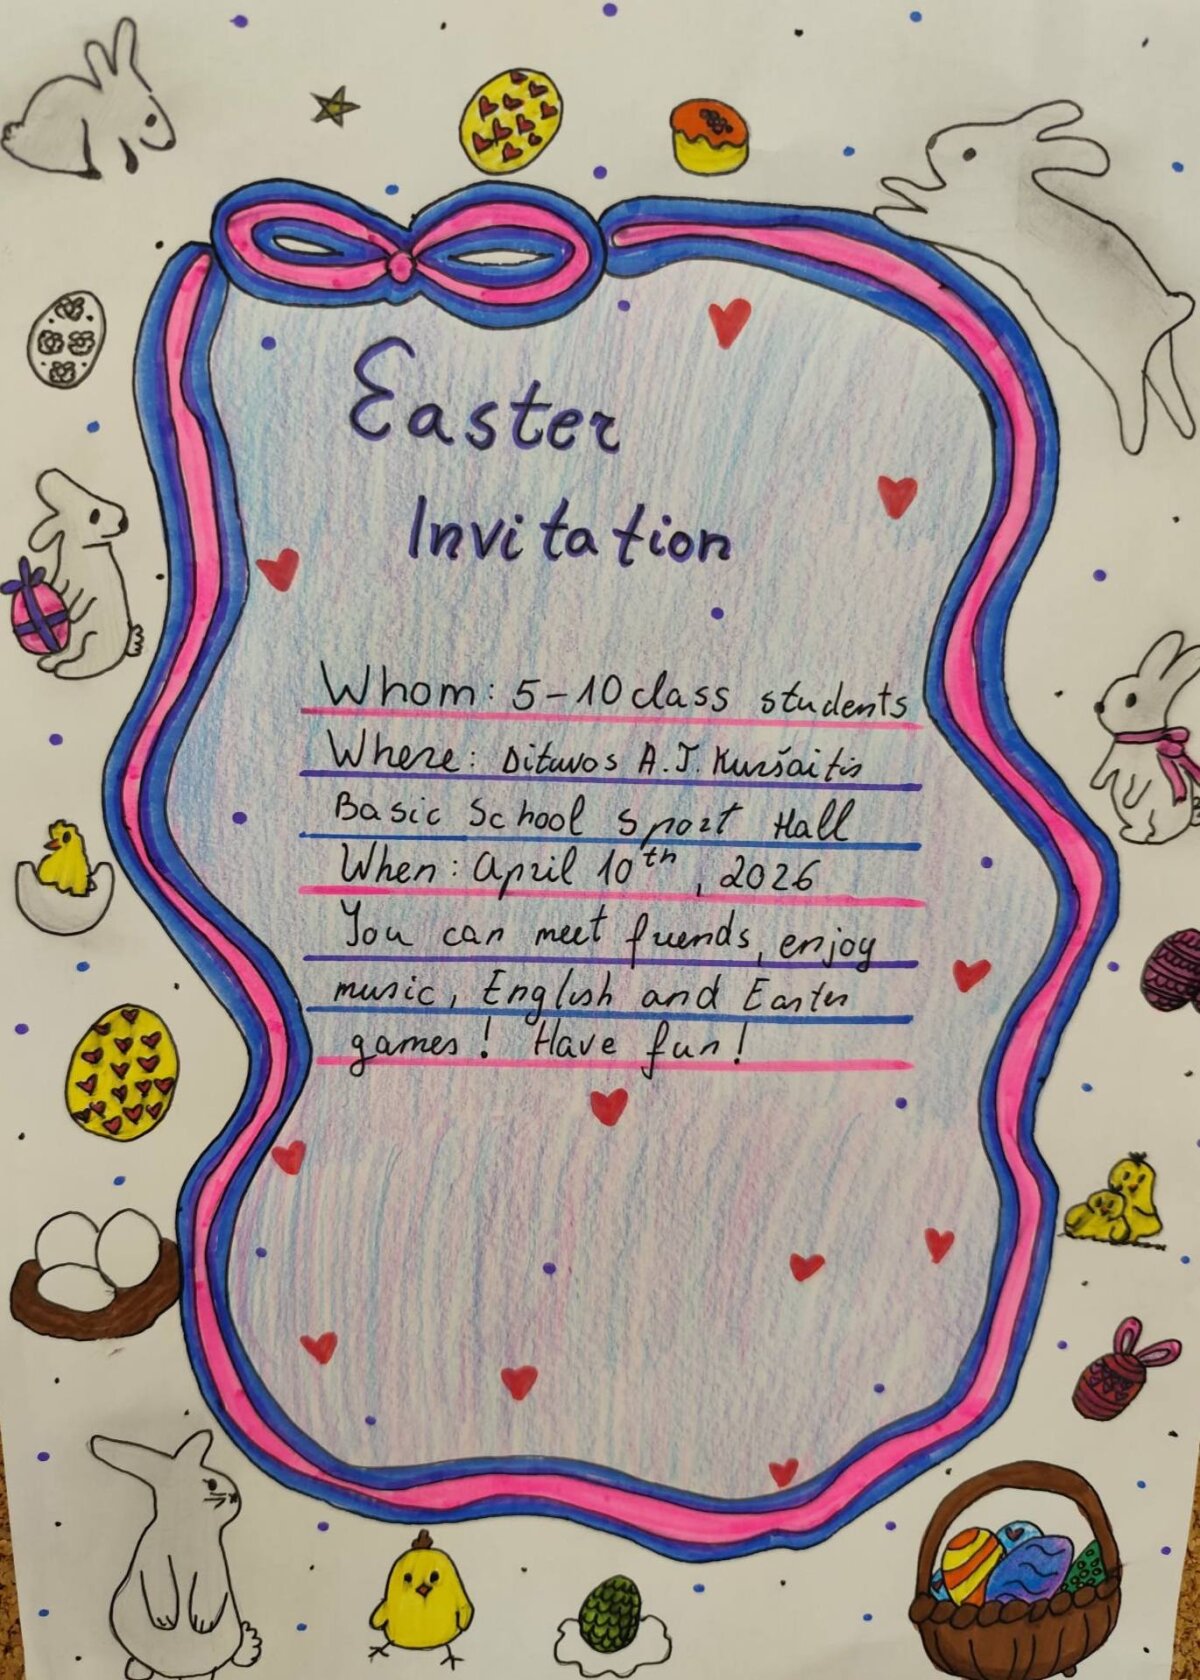 Easter
Invitation
Whom: 5-10 class students
Where: Dituvos A.J. Kuršaitis
Basic School Sport Hall
When: April 10th, 2026
You can meet friends, enjoy
music, English and Easter
games! Have fun!